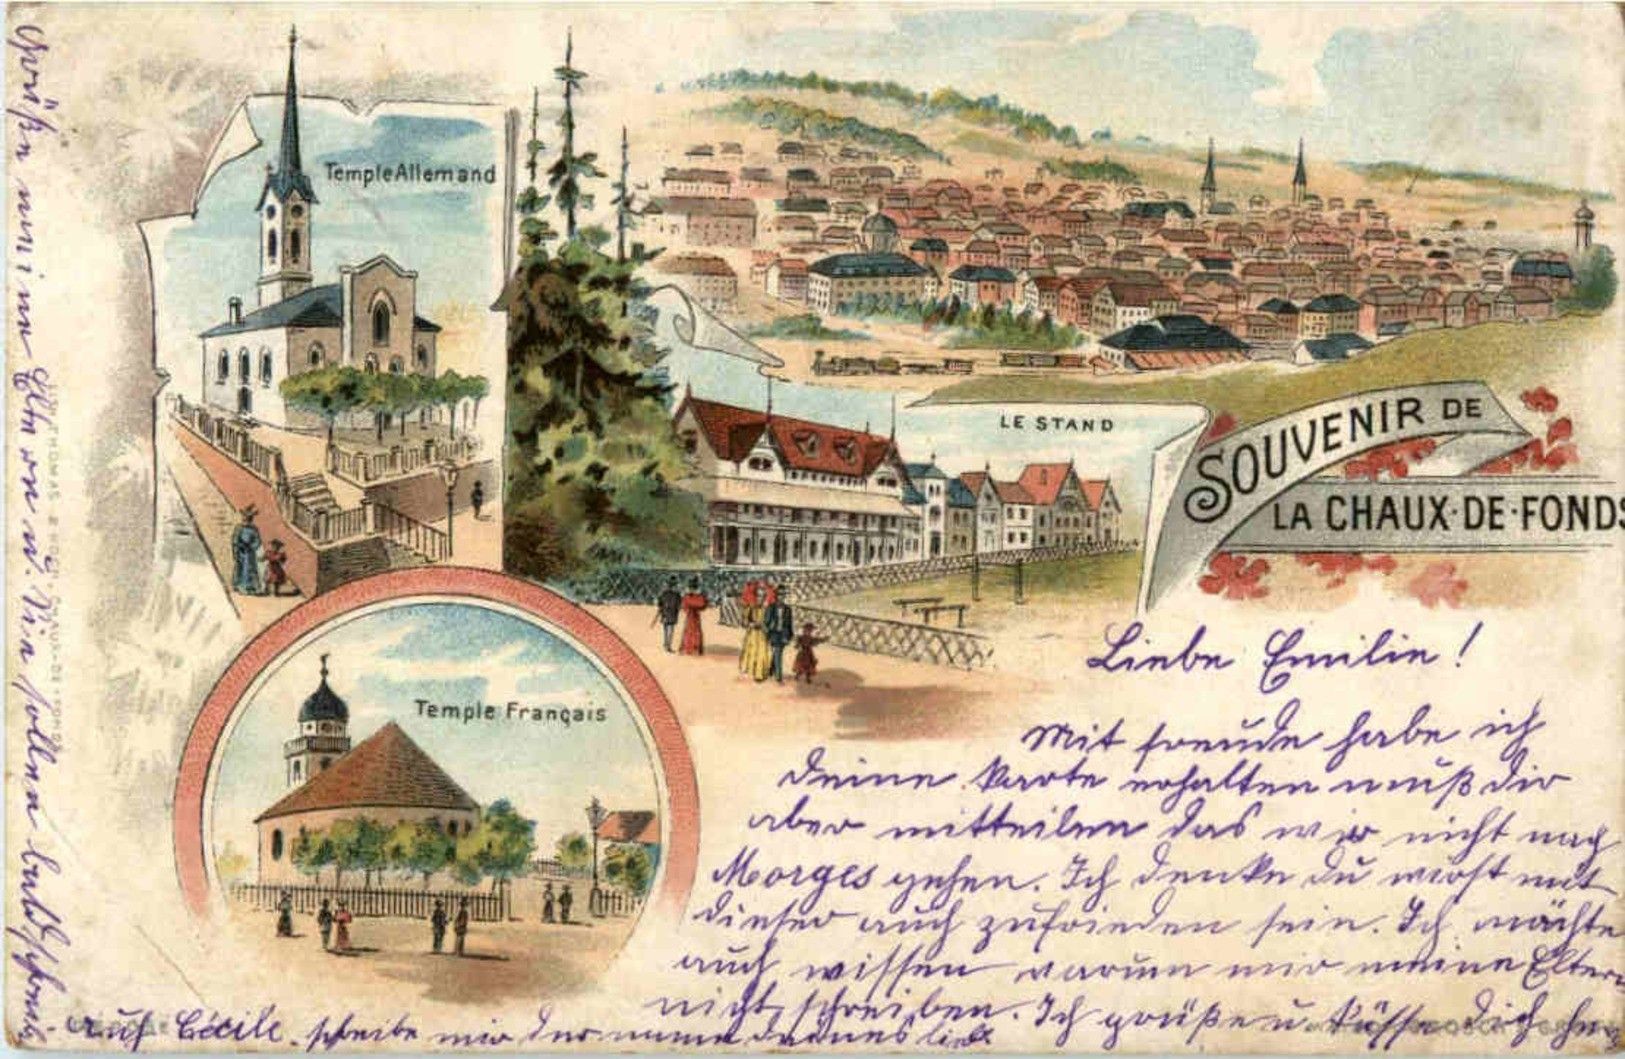 Temple Allemand
LE STAND
SOUVENIR DE
LA CHAUX-DE-FONDS
Temple Français
Liebe Emilie!
Mit freude habe ich
deine Karte erhalten muß dir
aber mitteilen das wir nicht nach
Morges gehen. Ich denke du wirst mit
dieser auch zufrieden sein. Ich möchte
auch wissen warum mir meine Eltern
nicht schreiben. Ich grüße u. Küsse Dich
auf Cécile. schreibe mir
Grüße mir meine Eltern und u. Sie sollen bald schreiben